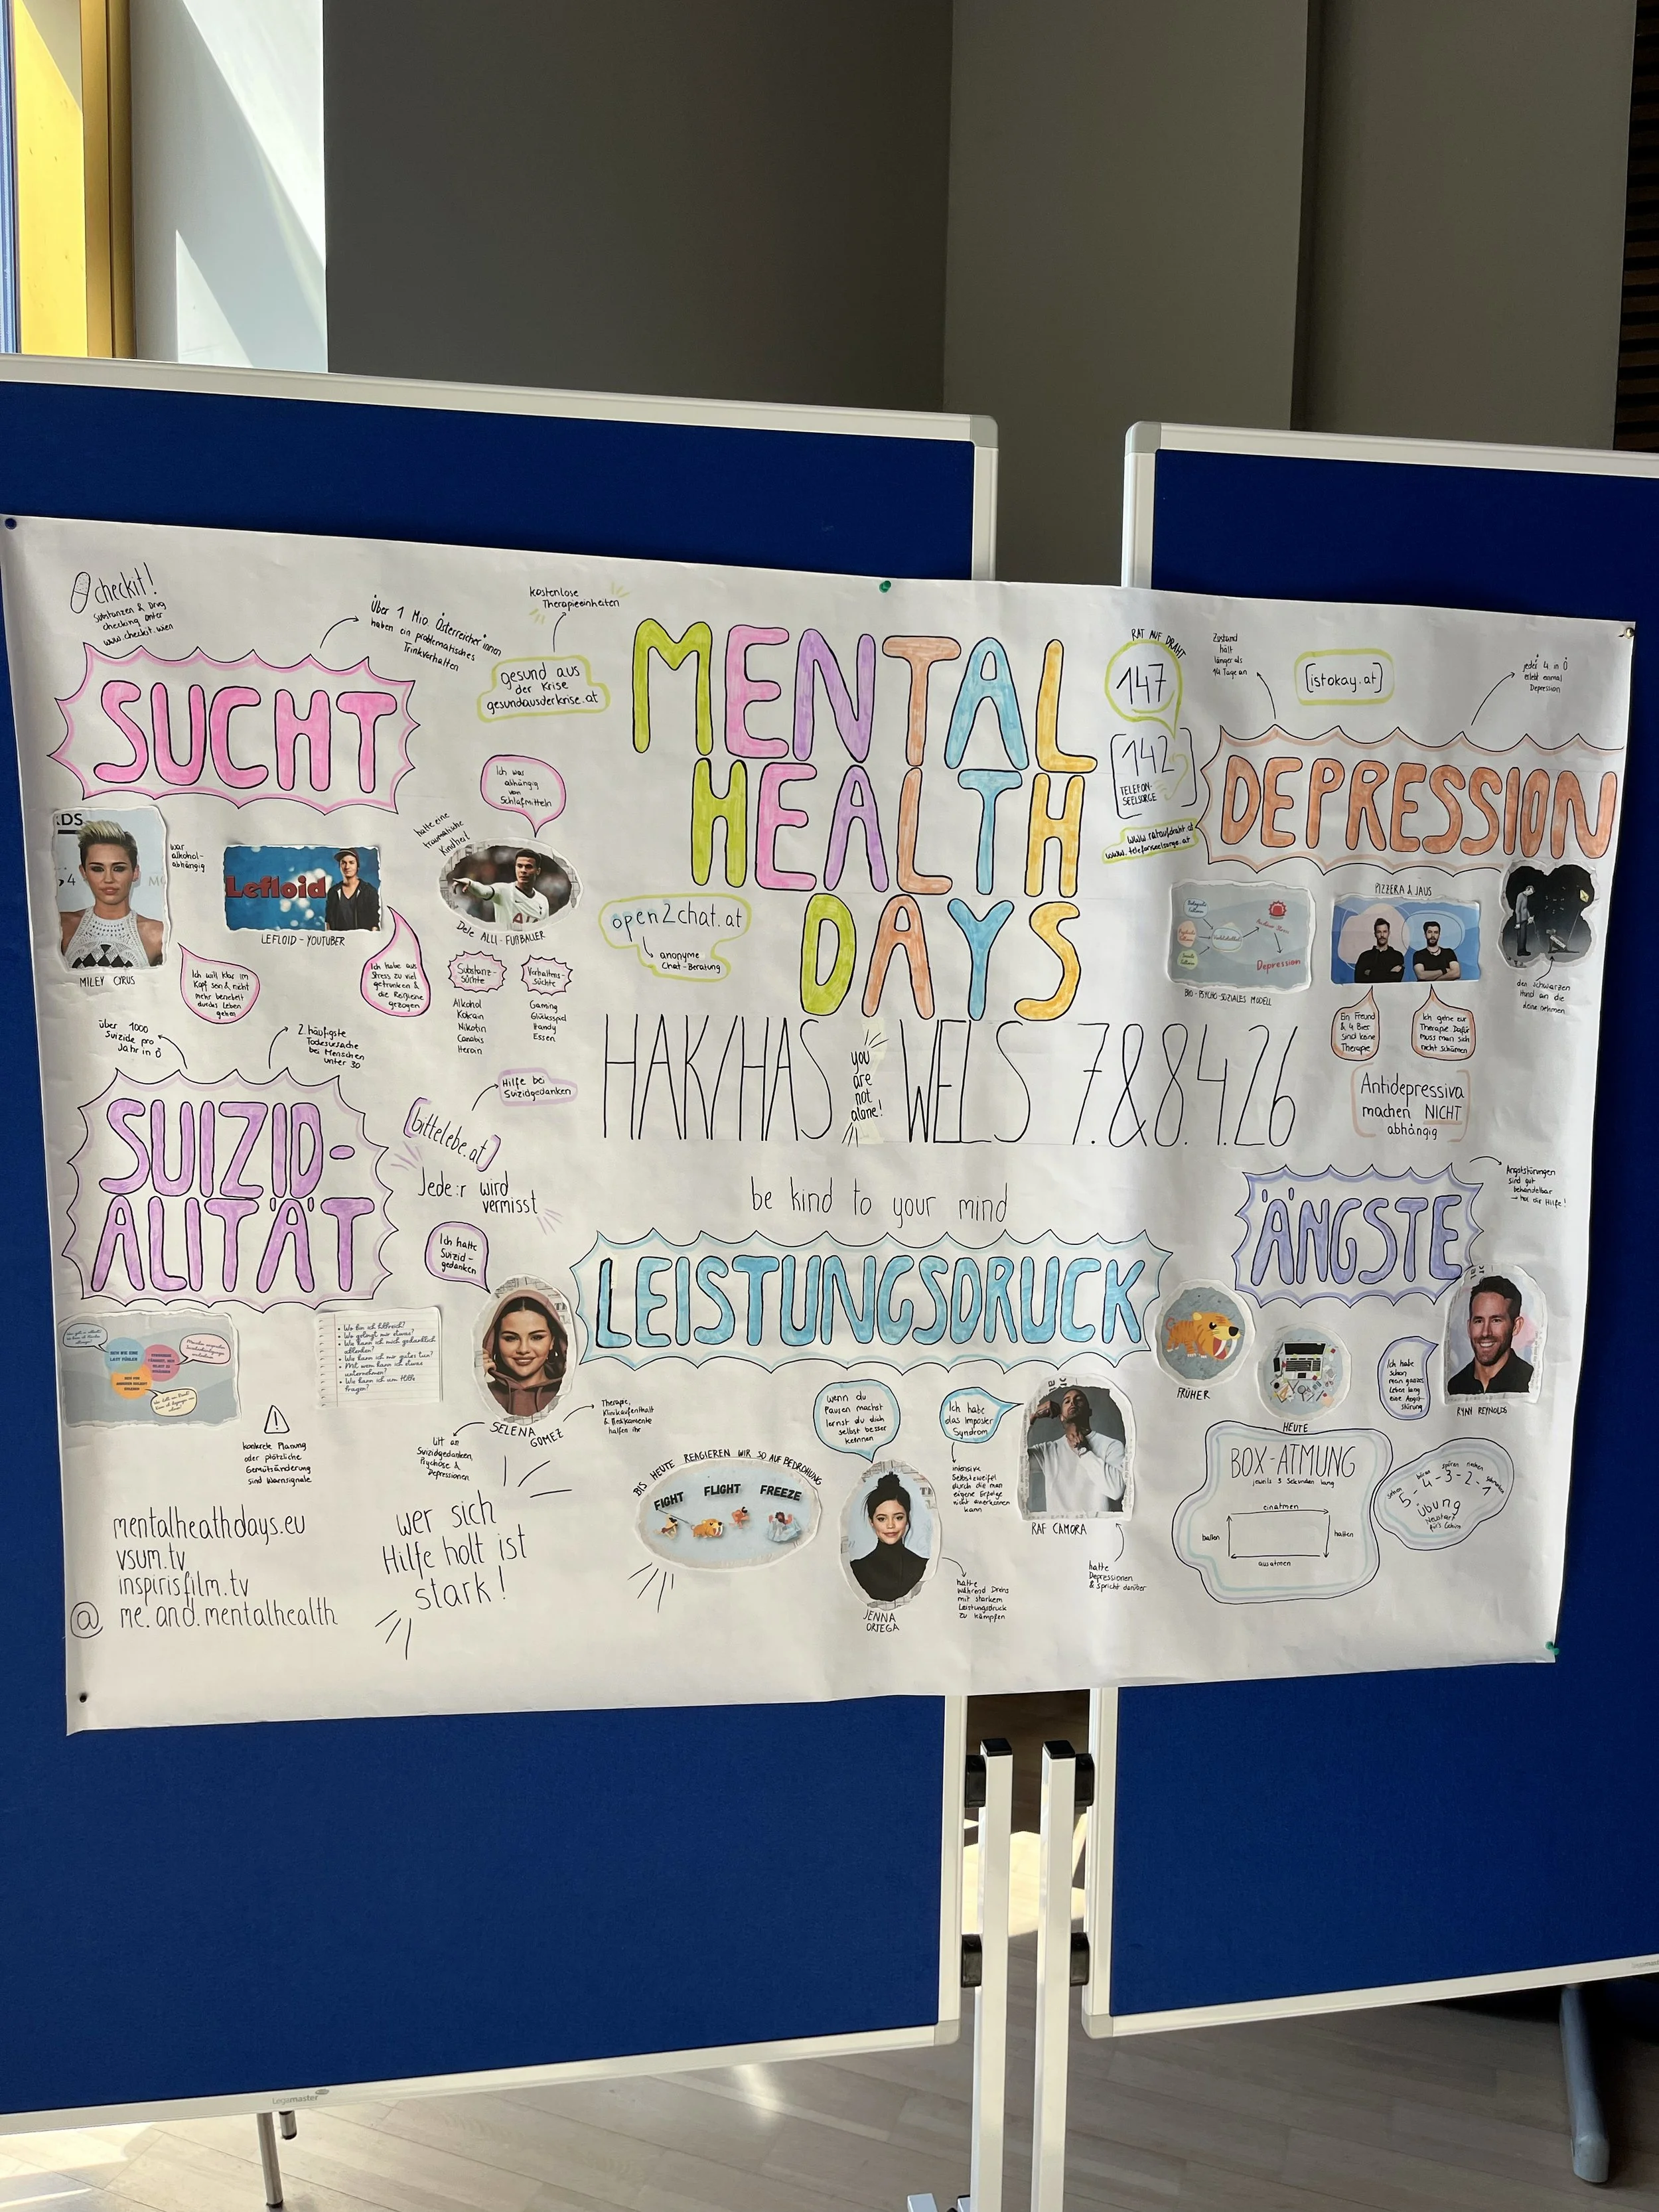 checkit!
Substanzen & Drug
checking unter
www.checkit.wien
Über 1 Mio Österreicher*innen
haben ein problematisches
Trinkverhalten
SUCHT
kostenlose
Therapieeinheiten
gesund aus
der Krise
gesundausderkrise.at
MENTAL
HEALTH
DAYS
HAK/HAS WELS 7.&8.4.26
you
are
not
alone!
be kind to your mind
RAT AUF DRAHT
147
142
TELEFON-
SEELSORGE
www.rataufdraht.at
www.telefonseelsorge.at
open2chat.at
anonyme
Chat-Beratung
Zustand
hält
länger als
14 Tage an
[istokay.at]
jede*r 4 in Ö
erlebt einmal
Depression
DEPRESSION
KDS
MILEY CYRUS
war
alkohol-
abhängig
Ich will klar im
Kopf sein & nicht
mehr benebelt
durchs Leben
gehen
Lefloid
LEFLOID - YOUTUBER
Ich habe aus
Stress zu viel
getrunken &
die Reißleine
gezogen
hatte eine
traumatische
Kindheit
Ich war
abhängig
von
Schlafmitteln
Dele ALLI - FUßBALLER
Substanz-
süchte
Alkohol
Kokain
Nikotin
Canabis
Heroin
Verhaltens-
süchte
Gaming
Glücksspiel
Handy
Essen
Depression
BIO-PSYCHO-SOZIALES MODELL
PIZZERA & JAUS
Ein Freund
& 4 Bier
sind keine
Therapie
Ich gehe zur
Therapie. Dafür
muss man sich
nicht schämen
den schwarzen
Hund an die
Leine nehmen
Antidepressiva
machen NICHT
abhängig
über 1000
Suizide pro
Jahr in Ö
2. häufigste
Todesursache
bei Menschen
unter 30
SUIZID-
ALITÄT
Hilfe bei
Suizidgedanken
(bittelebe.at)
Jede:r wird
vermisst
Ich hatte
Suizid-
gedanken
SELENA
GOMEZ
litt an
Suizidgedanken,
Psychose &
Depressionen
Therapie,
Klinikaufenthalt
& Medikamente
halfen ihr
• Wo bin ich hilfreich?
• Wo gelingt mir etwas?
• Wie kann ich mich gedanklich
ablenken?
• Wie kann ich mir gutes tun?
• Mit wem kann ich etwas
unternehmen?
• Wo kann ich um Hilfe
fragen?
!
konkrete Planung
oder plötzliche
Gemütsänderung
sind Warnsignale
mentalheathdays.eu
vsum.tv
inspirisfilm.tv
@ me.and.mentalhealth
wer sich
Hilfe holt ist
stark!
LEISTUNGSDRUCK
BIS HEUTE REAGIEREN WIR SO AUF BEDROHUNG
FIGHT FLIGHT FREEZE
wenn du
Pausen machst
lernst du dich
selbst besser
kennen
JENNA
ORTEGA
hatte
während Drehs
mit starkem
Leistungsdruck
zu kämpfen
Ich habe
das Imposter
Syndrom
intensive
Selbstzweifel
durch die man
eigene Erfolge
nicht anerkennen
kann
RAF CAMORA
hatte
Depressionen
& spricht darüber
ÄNGSTE
Angststörungen
sind gut
behandelbar
→ hol dir Hilfe!
FRÜHER
HEUTE
Ich habe
schon
mein ganzes
Leben lang
eine Angst-
störung
RYAN REYNOLDS
BOX-ATMUNG
jeweils 3 Sekunden lang
einatmen
halten
halten
ausatmen
sehen hören spüren riechen schmecken
5-4-3-2-1
Übung
Neustart
fürs Gehirn
Legamaster